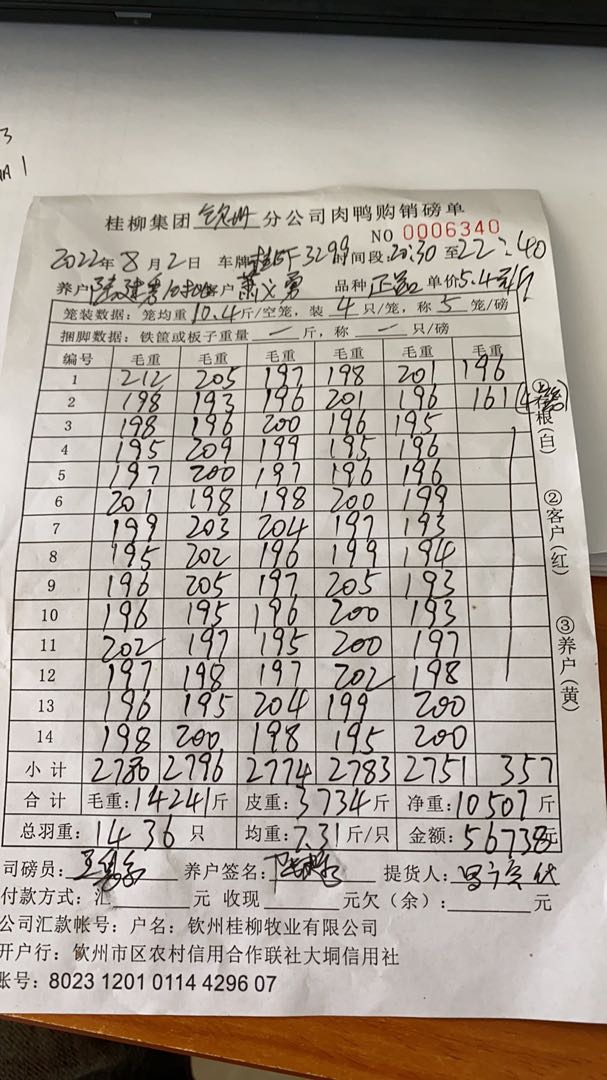 桂柳集团 钦州 分公司肉鸭购销磅单
NO 0006340
2022年8月2日 车牌 桂F3299 时间段:20:30至22:40
养户 客户 萧义勇 品种 单价5.4元/斤
笼装数据:笼均重10.4斤/空笼,装4只/笼,称5笼/磅
捆脚数据:铁筐或板子重量 — 斤,称 — 只/磅
编号 毛重 毛重 毛重 毛重 毛重 毛重
1 212 205 197 198 201 196
2 198 193 196 201 196 161
3 198 196 200 196 195
4 195 209 199 195 196
5 197 200 197 196 196
6 201 198 198 200 199
7 199 203 204 197 193
8 195 202 196 199 194
9 196 205 197 205 193
10 196 195 196 200 193
11 202 197 195 200 197
12 197 198 197 202 198
13 196 195 204 199 200
14 198 200 198 195 200
小计 2780 2796 2774 2783 2751 357
合计 毛重:14241斤 皮重:3734斤 净重:10507斤
总羽重:1436只 均重:7.31斤/只 金额:56738元
司磅员: 养户签名: 提货人:
付款方式:汇 元 收现 元欠(余): 元
公司汇款帐号:户名:钦州桂柳牧业有限公司
开户行:钦州市区农村信用合作联社大垌信用社
账号:8023 1201 0114 4296 07
①存根(白)
②客户(红)
③养户(黄)